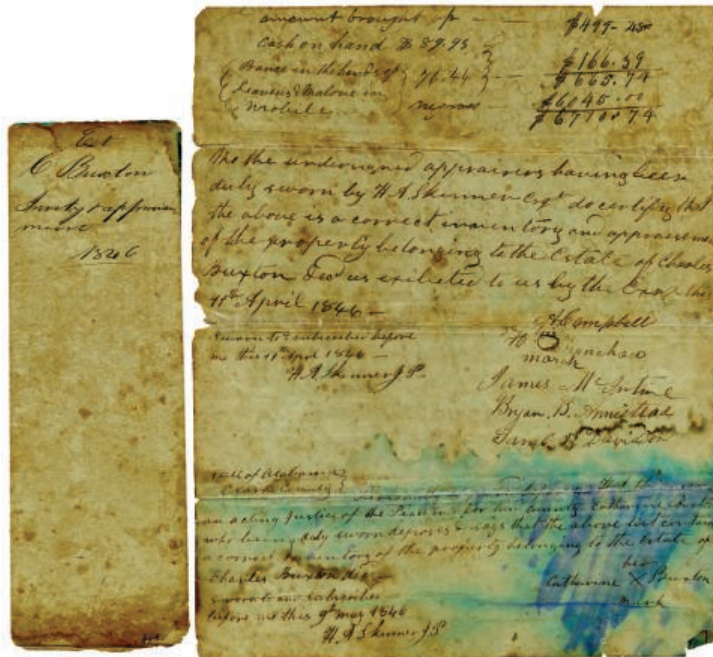 Est
C Buxton
Invty & appraise
ment
1846
amount brought up — $499-25
cash on hand $ 89.95
$166.39
Bance in the hands of 76.44 $665.74
Leavens & Malone in negroes $6045.00
Mobile $6710.74
We the undersigned appraisers having been
duly sworn by H. A. Skinner Esqr do certify that
the above is a correct inventory and appraiseme
of the property belonging to the Estate of Charles
Buxton Decd as exibeted to us by the Exx this
11th April 1846 —
A Campbell
sworn to & subscribed before
me this 11th April 1846 —
H. A. Skinner J.P.
mark
James McIntire
Bryan B. Armistead
Davidson
State of Alabama
Clarke County
an acting Justice of the Peace for him County Catharine
who being duly sworn deposes & says that the above list contains
a correct inventory of the property belonging to the Estate of
Charles Buxton dec —
her
Catherine X Buxton
mark
sworn to and subscribed
before me this 9th may 1846
H. A. Skinner J.P